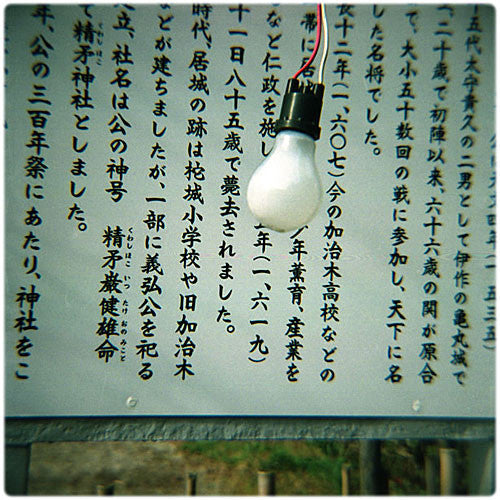 五代太守貴久の二男として伊作の亀丸城で
二十歳で初陣以来、六十六歳の関が原合
で、大小五十数回の戦に参加し、天下に名
した名将でした。
長十二年(一、六〇七)今の加治木高校などの
帯に居
年薫育、産業を
など仁政を施し
年(一、六一九)
十一日八十五歳で薨去されました。
時代、居城の跡は柁城小学校や旧加治木
どが建ちましたが、一部に義弘公を祀る
立、社名は公の神号 精矛厳健雄命
くわしほこ いつ たけ おのみこと
て精矛神社としました。
くわしほこ
年、公の三百年祭にあたり、神社をこ